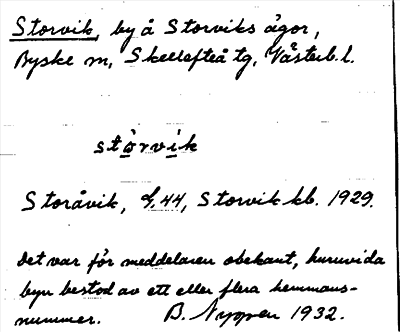 Storvik, by å Storviks ägor,
Byske sn, Skellefteå tg, Västerb. l.
stȯrvik
Storåvik, G. 44, Storvik kb. 1929.
Det var för meddelaren obekant, huruvida
byn bestod av ett eller flera hemmans-
nummer. B. Nygren 1932.